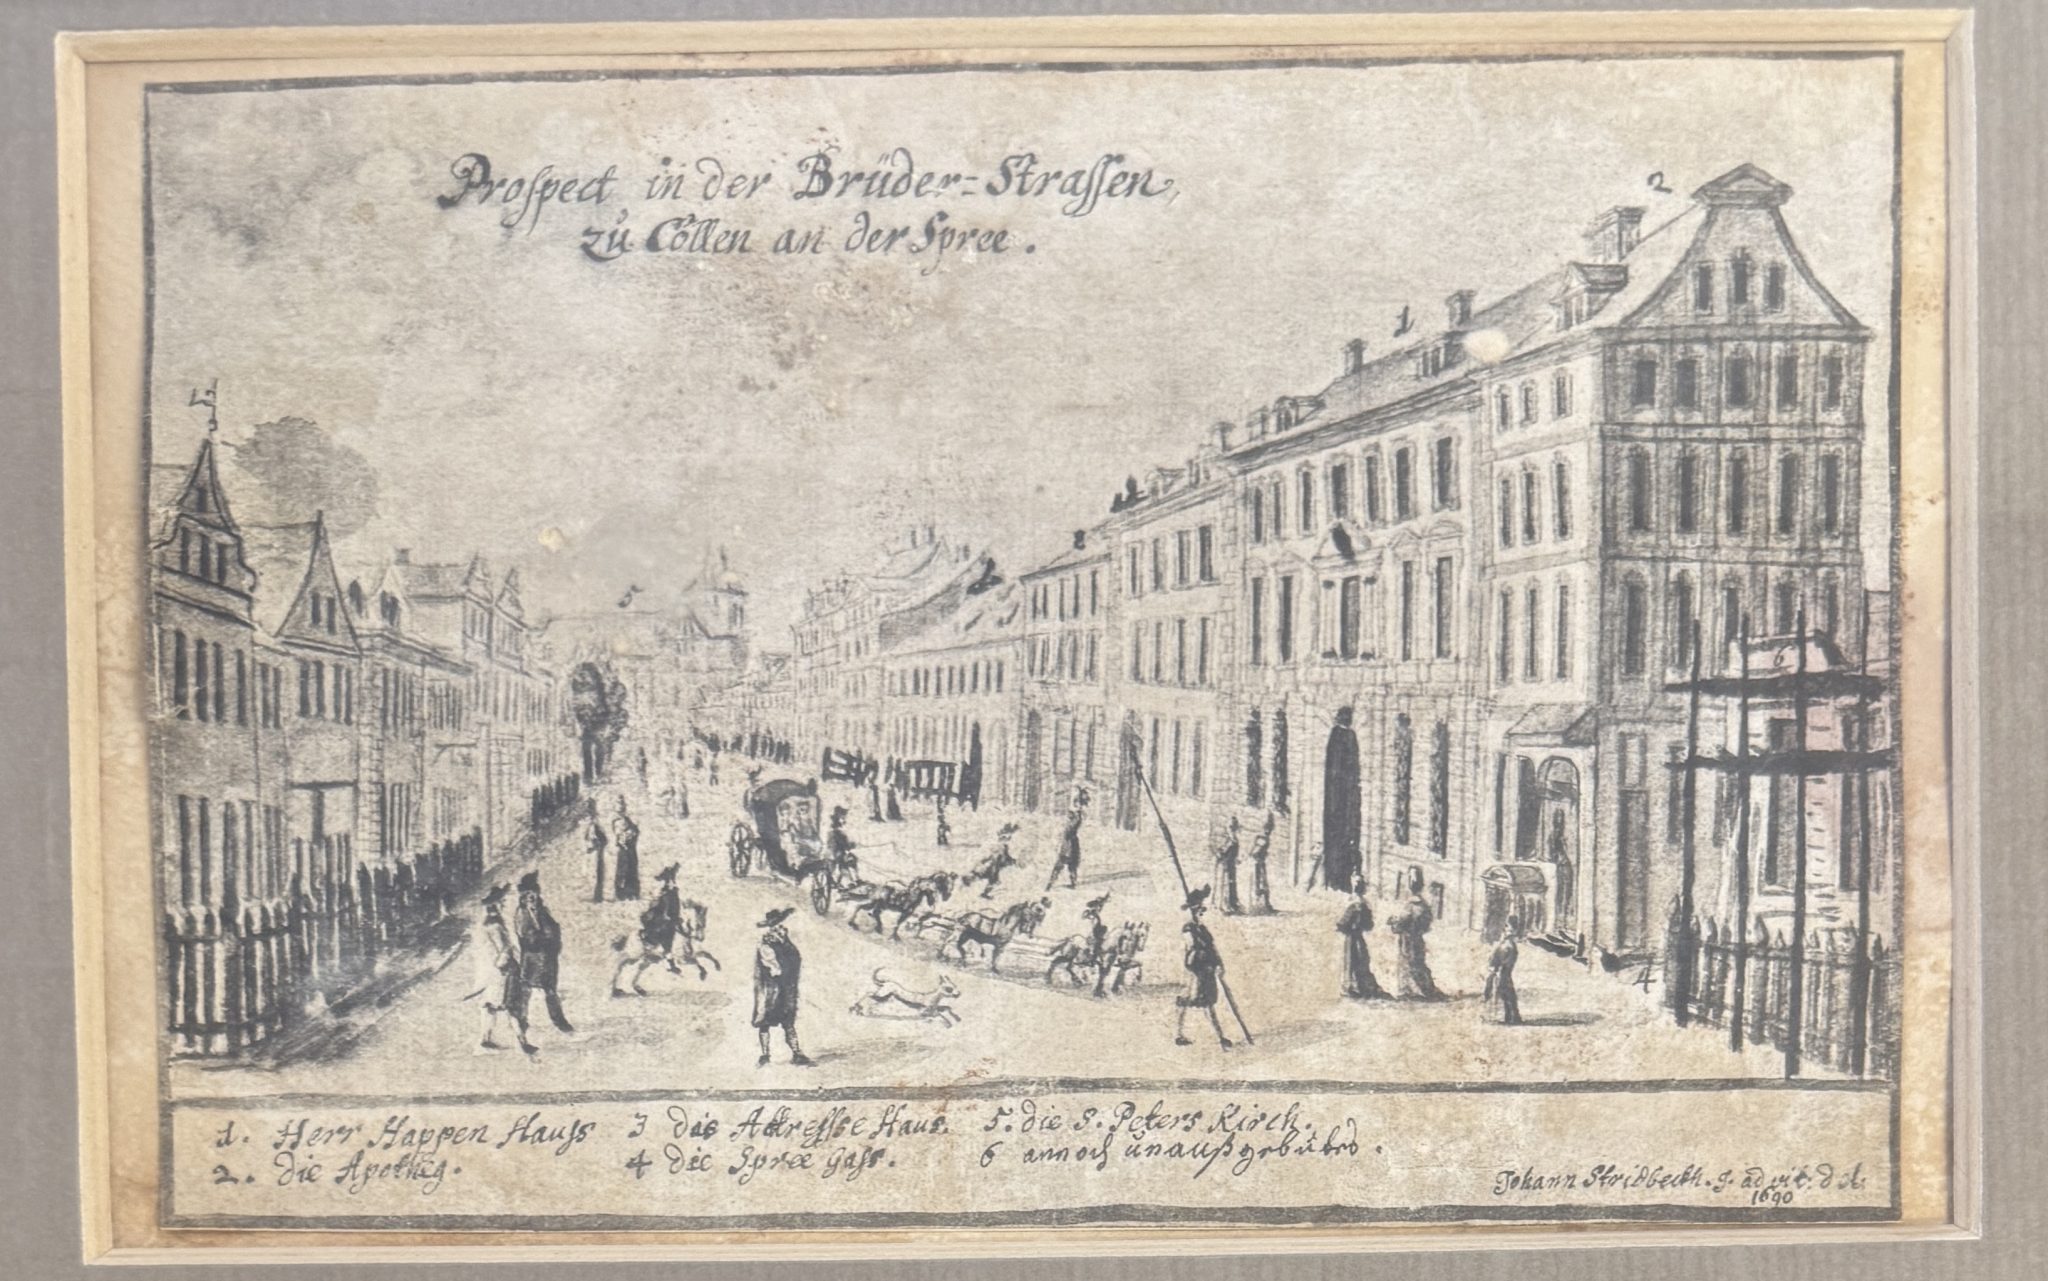 Prospect in der Brüder=Strassen,
zu Cöllen an der Spree.
2
1
5
6
4
1. Herr Happen Hauss
2. die Apotheg.
3 das Adresse Haus.
4 die Spree Gass.
5. die S. Peters Kirch.
6 annoch unaußgebauet.
Johann Stridbeckh. J. ad vit. del.
1690